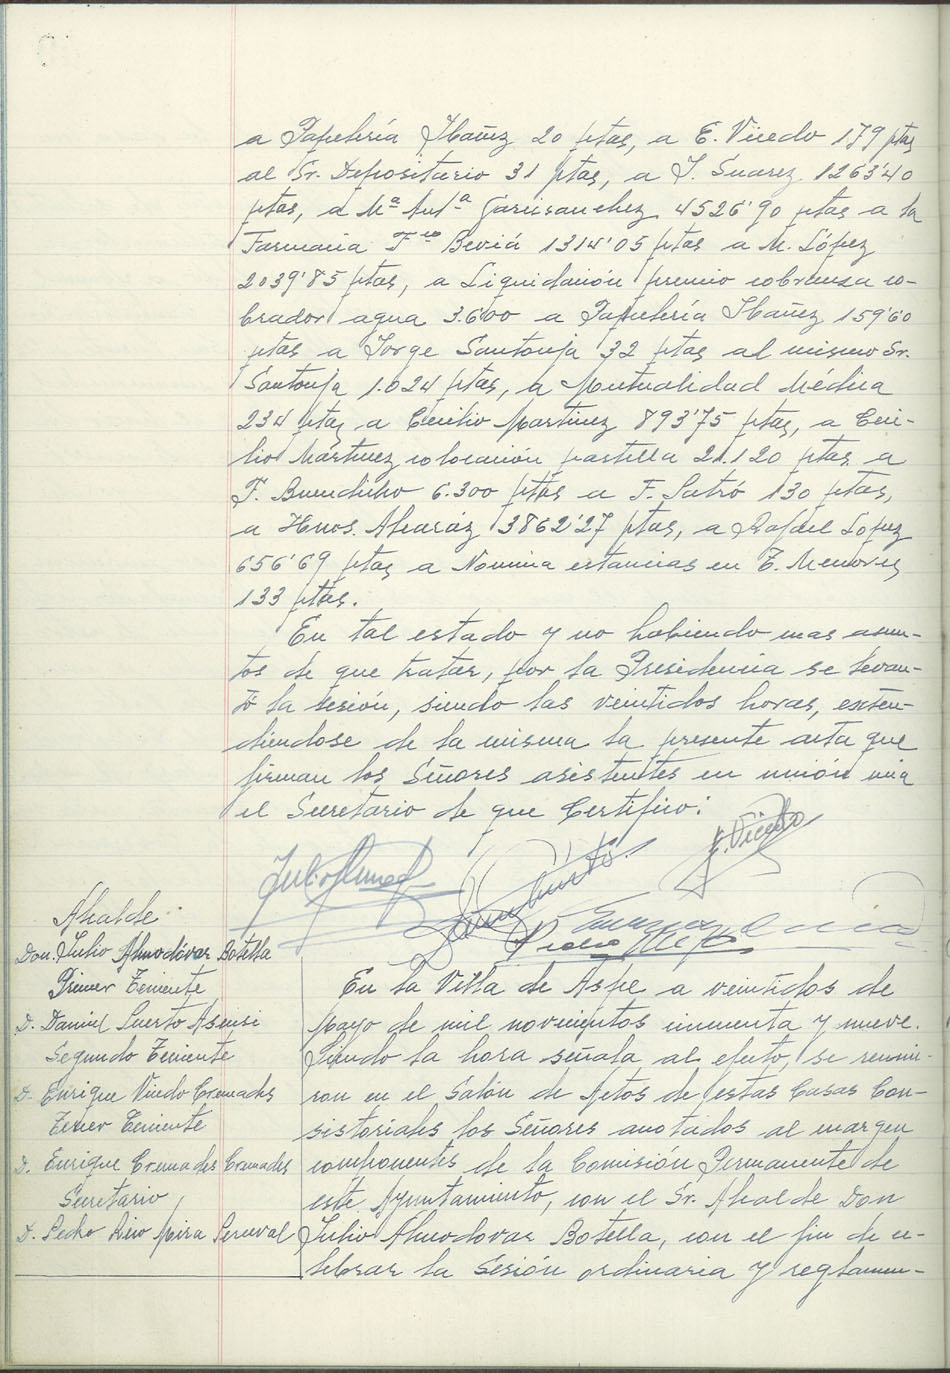 a Papelería Ibañez 20 ptas, a E. Vicedo 179 ptas
al Sr. Depositario 31 ptas, a J. Suarez 1263'40
ptas, a Mª Antª Garcisanchez 4526'90 ptas a la
Farmacia Fco Beviá 1314'05 ptas a M. López
2039'85 ptas, a Liquidación premio cobranza co-
brador agua 3.600 a Papelería Ibañez 159'60
ptas a Jorge Santonja 32 ptas al mismo Sr.
Santonja 1.024 ptas, a Mutualidad Médica
234 ptas a Cecilio Martinez 893'75 ptas, a Ceci-
lio Mártinez colocación pastilla 21.120 ptas a
F. Buendicho 6.300 ptas a F. Satró 130 ptas,
a Hnos. Alcaráz 3862'27 ptas, a Rafael Lopez
656'69 ptas a Nomina estancias en T. Menores
133 ptas.
En tal estado y no habiendo mas asun-
tos de que tratar, por la Presidencia se levan-
tó la sesión, siendo las veintidos horas, exten-
diendose de la misma la presente acta que
firman los Señores asistentes en unión mia
el Secretario de que Certifico:
Julio Almod
Puerto
E. Vicedo
Alcalde
Don Julio Almodóvar Botella
Primer Teniente
D. Daniel Puerto Asensi
Segundo Teniente
D. Enrique Vicedo Cremades
Tercer Teniente
D. Enrique Cremades Cremades
Secretario
D. Pedro Mira Perceval
En la Villa de Aspe a veintidos de
Mayo de mil novecientos cincuenta y nueve.
Siendo la hora señala al efecto, se reunie-
ron en el Salón de Actos de estas Casas Con-
sistoriales los Señores anotados al margen
componentes de la Comisión Permanente de
este Ayuntamiento, con el Sr. Alcalde Don
Julio Almodovar Botella, con el fin de ce-
lebrar la Sesión ordinaria y reglamen-